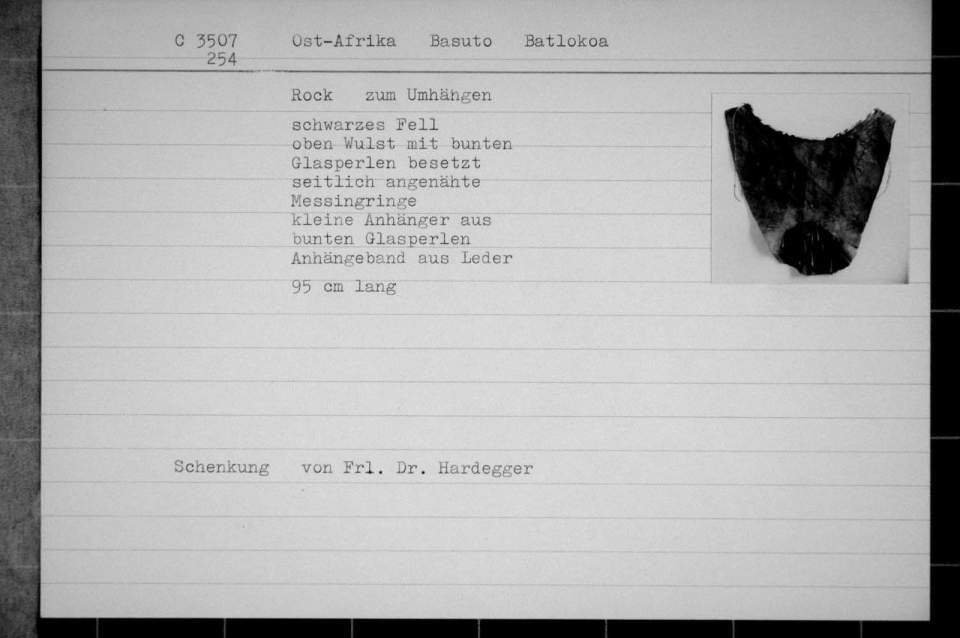 C 3507 Ost-Afrika Basuto Batlokoa
254
Rock zum Umhängen
schwarzes Fell
oben Wulst mit bunten
Glasperlen besetzt
seitlich angenähte
Messingringe
kleine Anhänger aus
bunten Glasperlen
Anhängeband aus Leder
95 cm lang
Schenkung von Frl. Dr. Hardegger